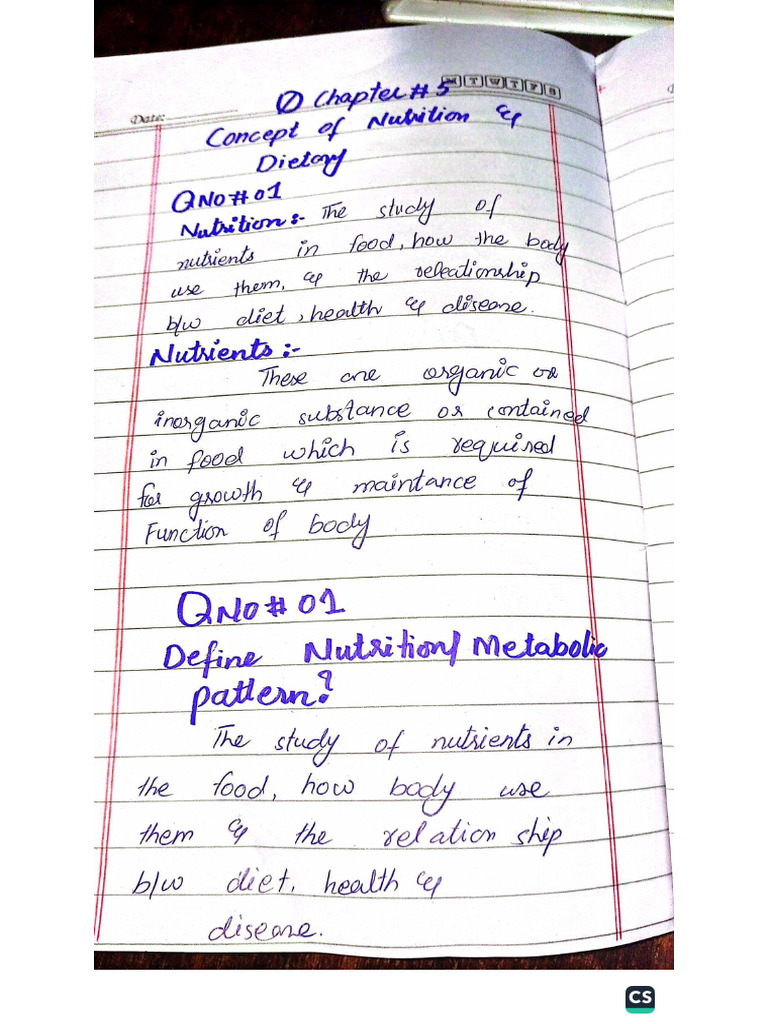 Date:
M T W T F S
Ø Chapter # 5
Concept of Nutrition &
Dietary
QNO# 01
Nutrition:- The study of
nutrients in food, how the body
use them, & the releationship
b/w diet, health & disease.
Nutrients:-
These are organic or
inorganic substance or contained
in food which is required
for growth & maintance of
Function of body
QNO# 01
Define Nutrition/ Metabolic
pattern?
The study of nutrients in
the food, how body use
them & the relation ship
b/w diet, health &
disease.
CS